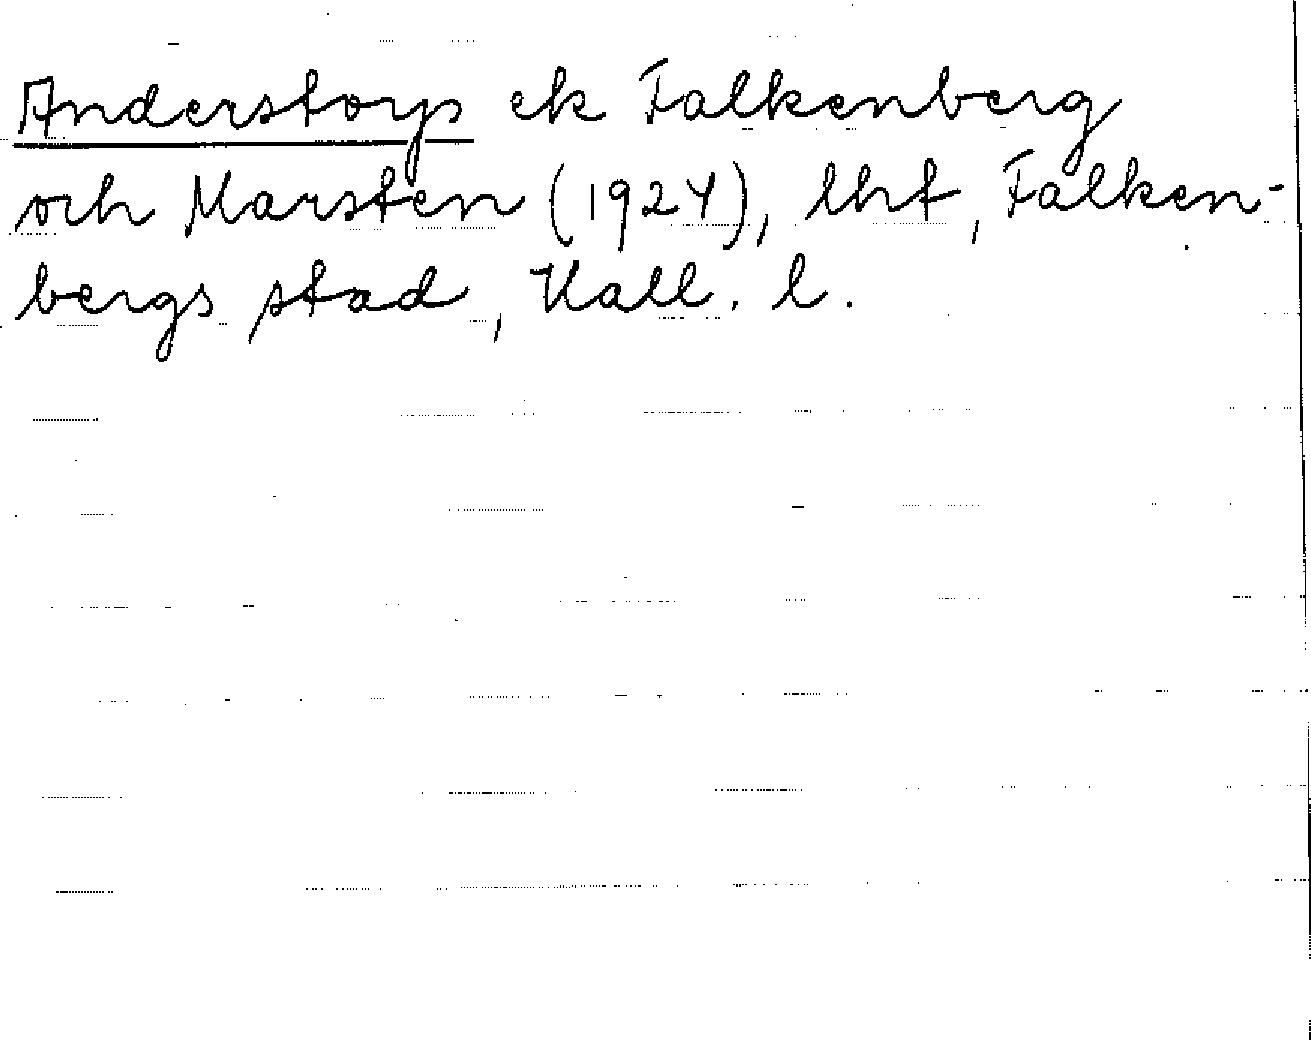 Anderstorps ek Falkenberg
och Marsten (1924), lhf, Falken-
bergs stad, Hall. l.